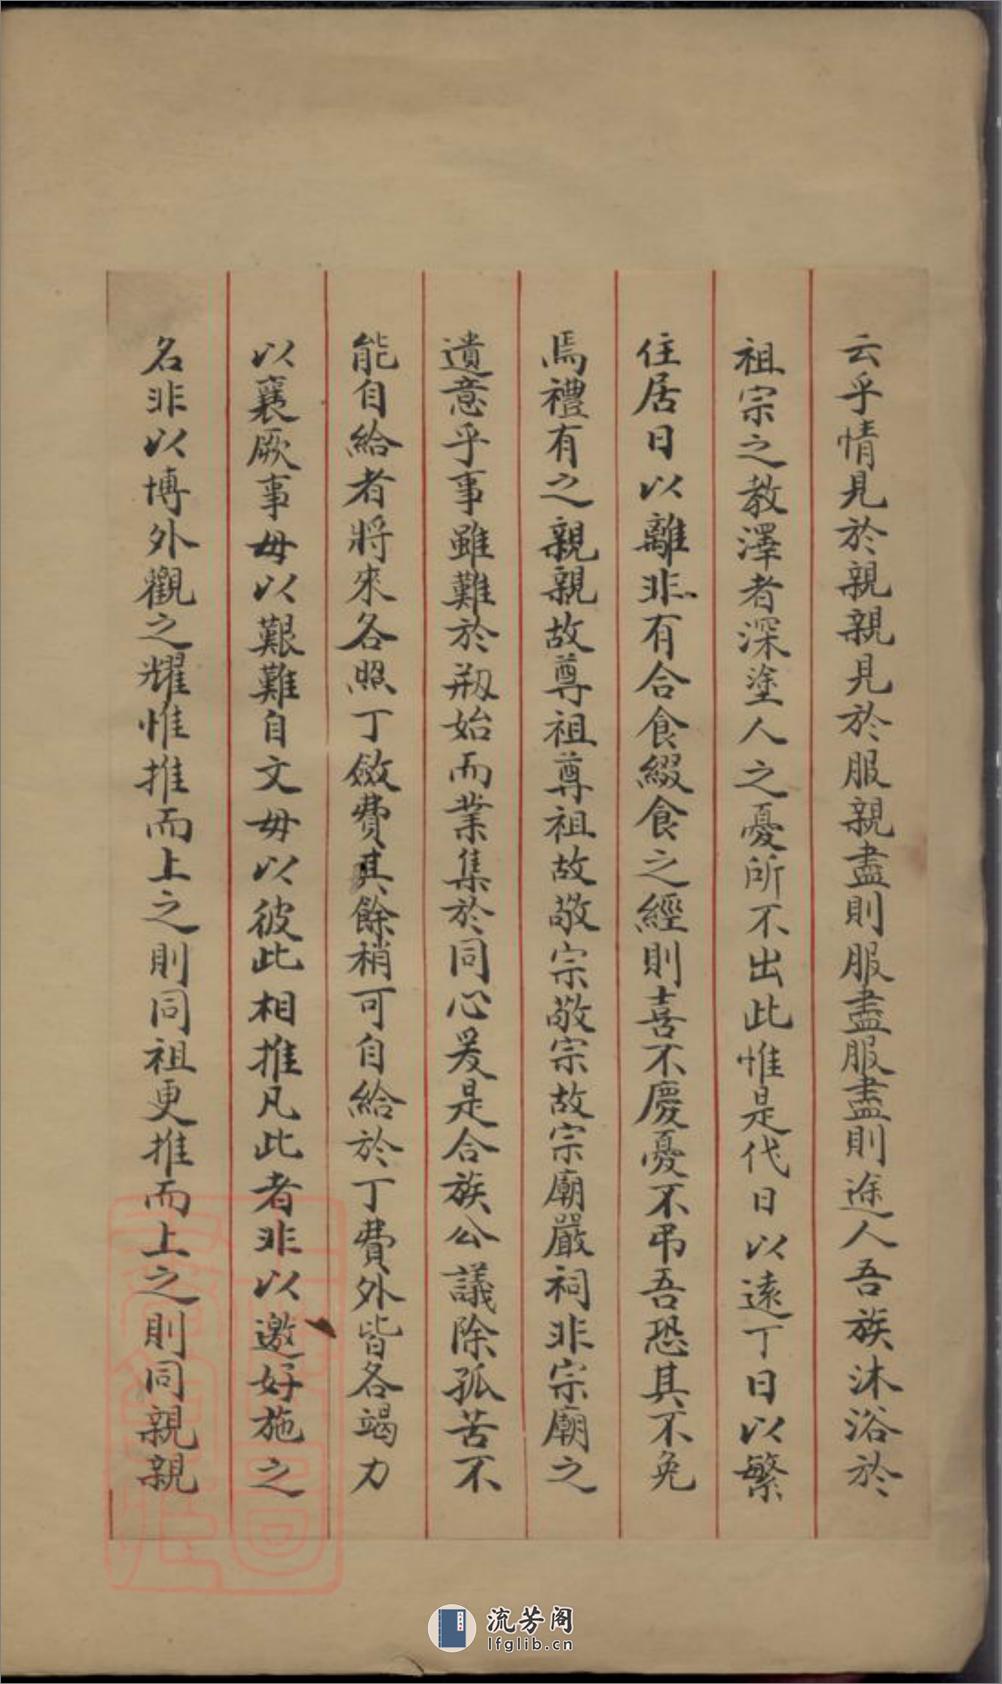 云乎情見於親親見於服親盡則服盡服盡則途人吾族沐浴於
祖宗之教澤者深塗人之憂所不出此惟是代日以遠丁日以繁
住居日以離非有合食綴食之經則喜不慶憂不弔吾恐其不免
焉禮有之親親故尊祖尊祖故敬宗敬宗故宗廟嚴祠非宗廟之
遺意乎事雖難於剏始而業集於同心爰是合族公議除孤苦不
能自給者將來各照丁斂費其餘稍可自給於丁費外皆各竭力
以襄厥事毋以艱難自文毋以彼此相推凡此者非以邀好施之
名非以博外觀之耀惟推而上之則同祖更推而上之則同親親
流芳阁
lfglib.cn